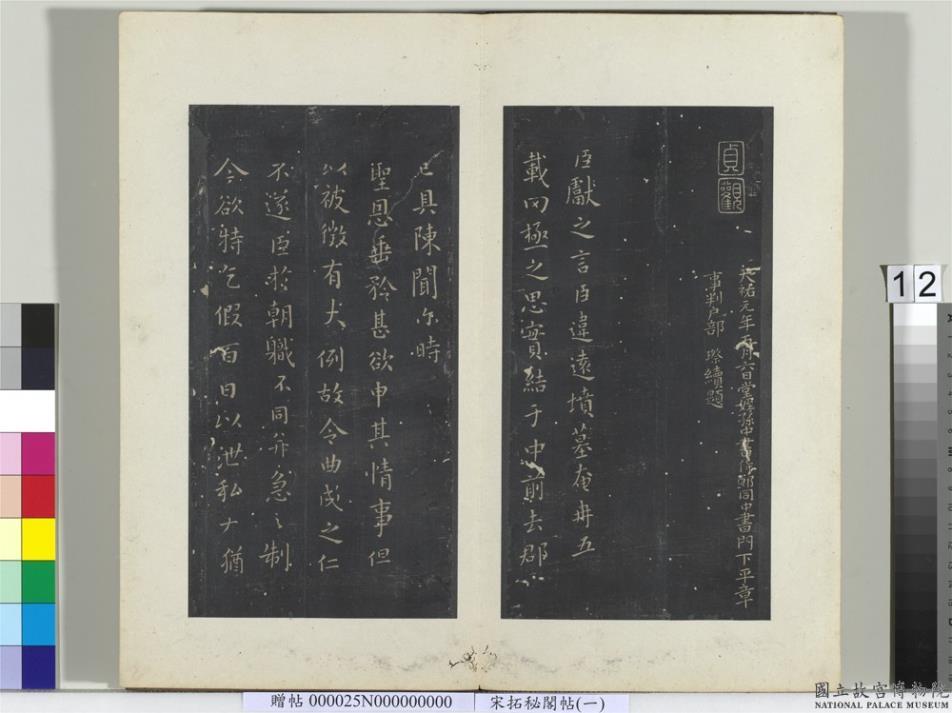 貞觀
天祐元年月六日堂姪孫中書侍郎同中書門下平章
事判戶部 璨續題
臣獻之言臣違遠墳墓奄冉五
載罔極之思實結于中前去郡
已具陳聞尔時
聖恩垂矜甚欲申其情事但
以被徵有大例故令曲成之仁
不遂臣於朝職不同急之制
今欲特乞假百日以泄私猶
12
贈帖 000025N000000000
宋拓秘閣帖(一)
國立故宮博物院
NATIONAL PALACE MUSEUM